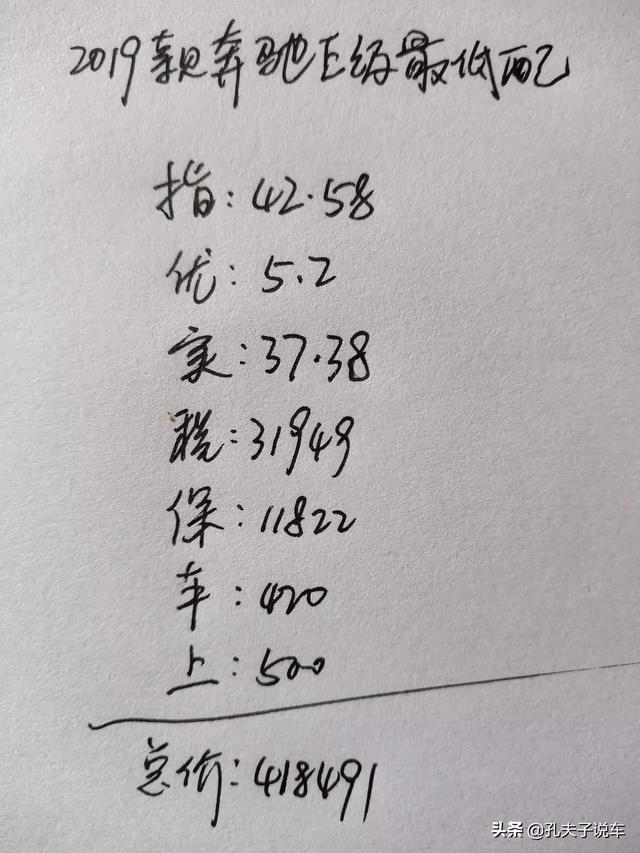 2019款奔驰E级最低配
指:42.58
优:5.2
实:37.38
税:31949
保:11822
车:420
上:500
总价:418491
头条 @孔夫子说车